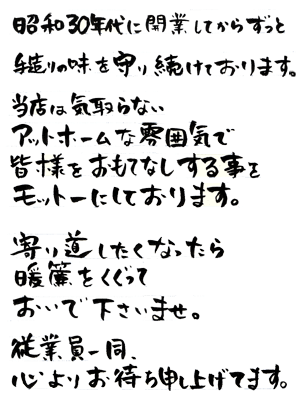 昭和30年代に開業してからずっと
手造りの味を守り続けております。
当店は気取らない
アットホームな雰囲気で
皆様をおもてなしする事を
モットーにしております。
寄り道したくなったら
暖簾をくぐって
おいで下さいませ。
従業員一同、
心よりお待ち申し上げてます。